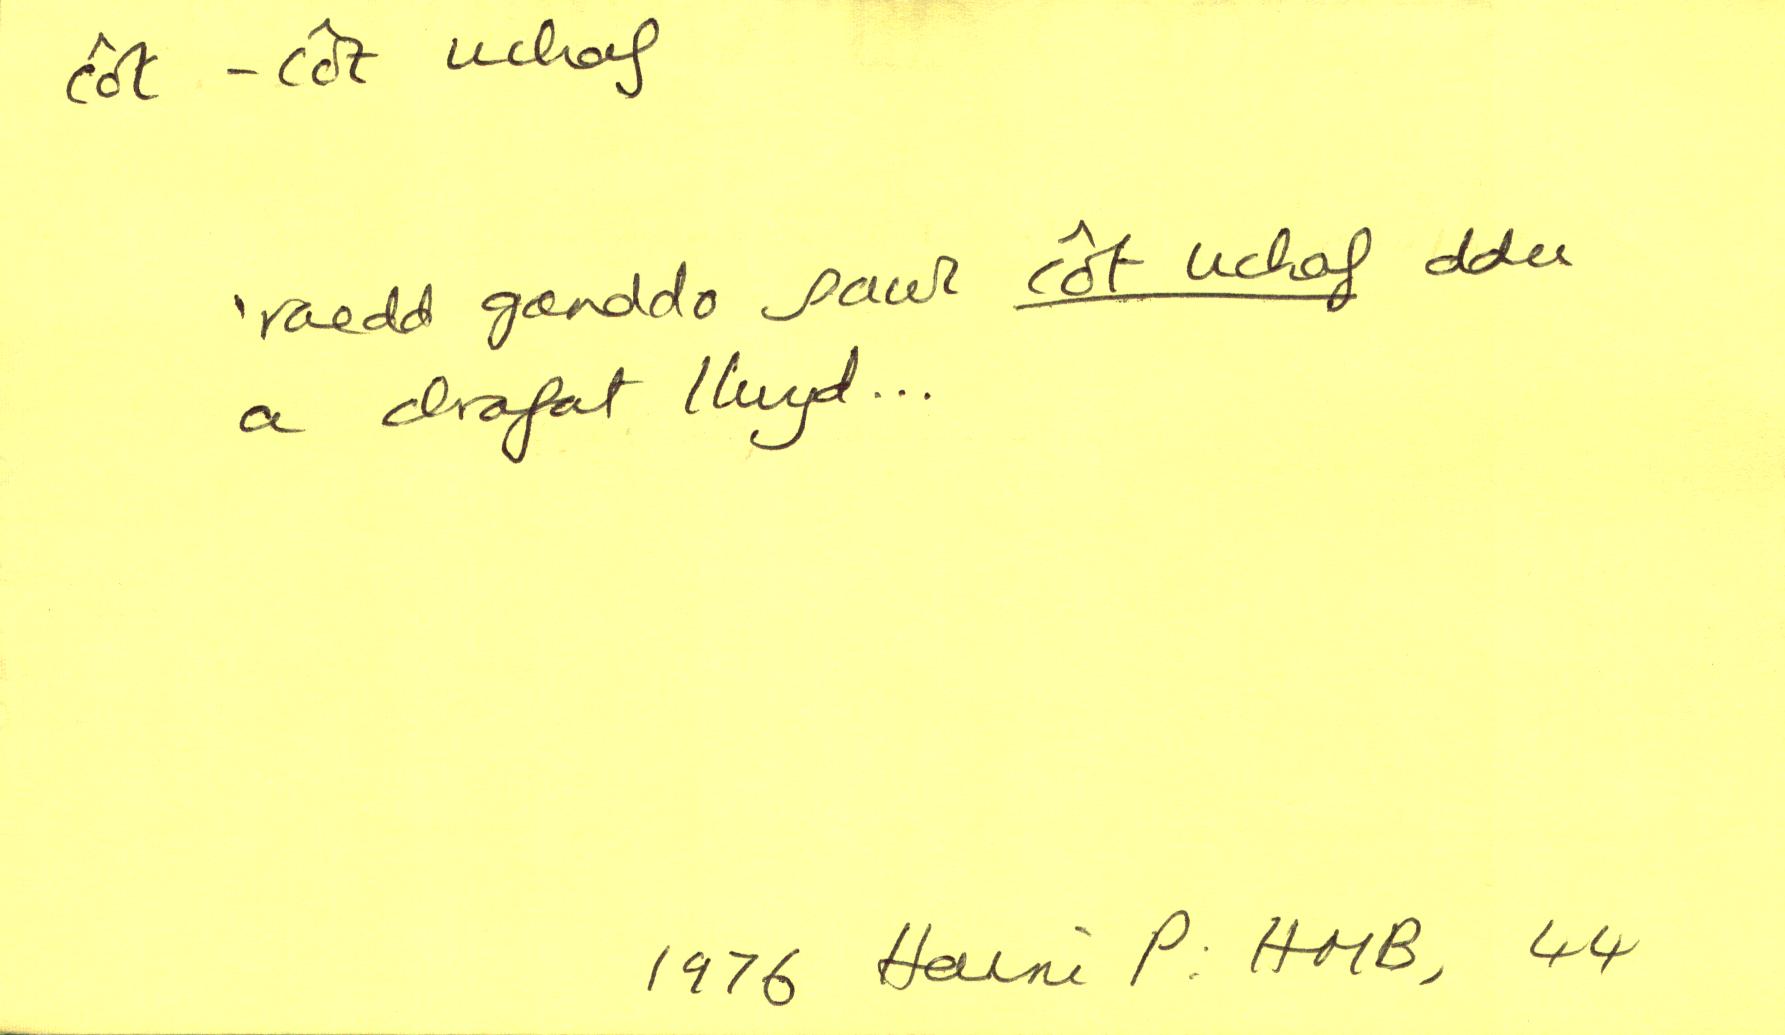 côt - côt uchaf
'roedd ganddo sawr côt uchaf ddu
a chrafat llwyd...
1976 Harri P: HMB, 44